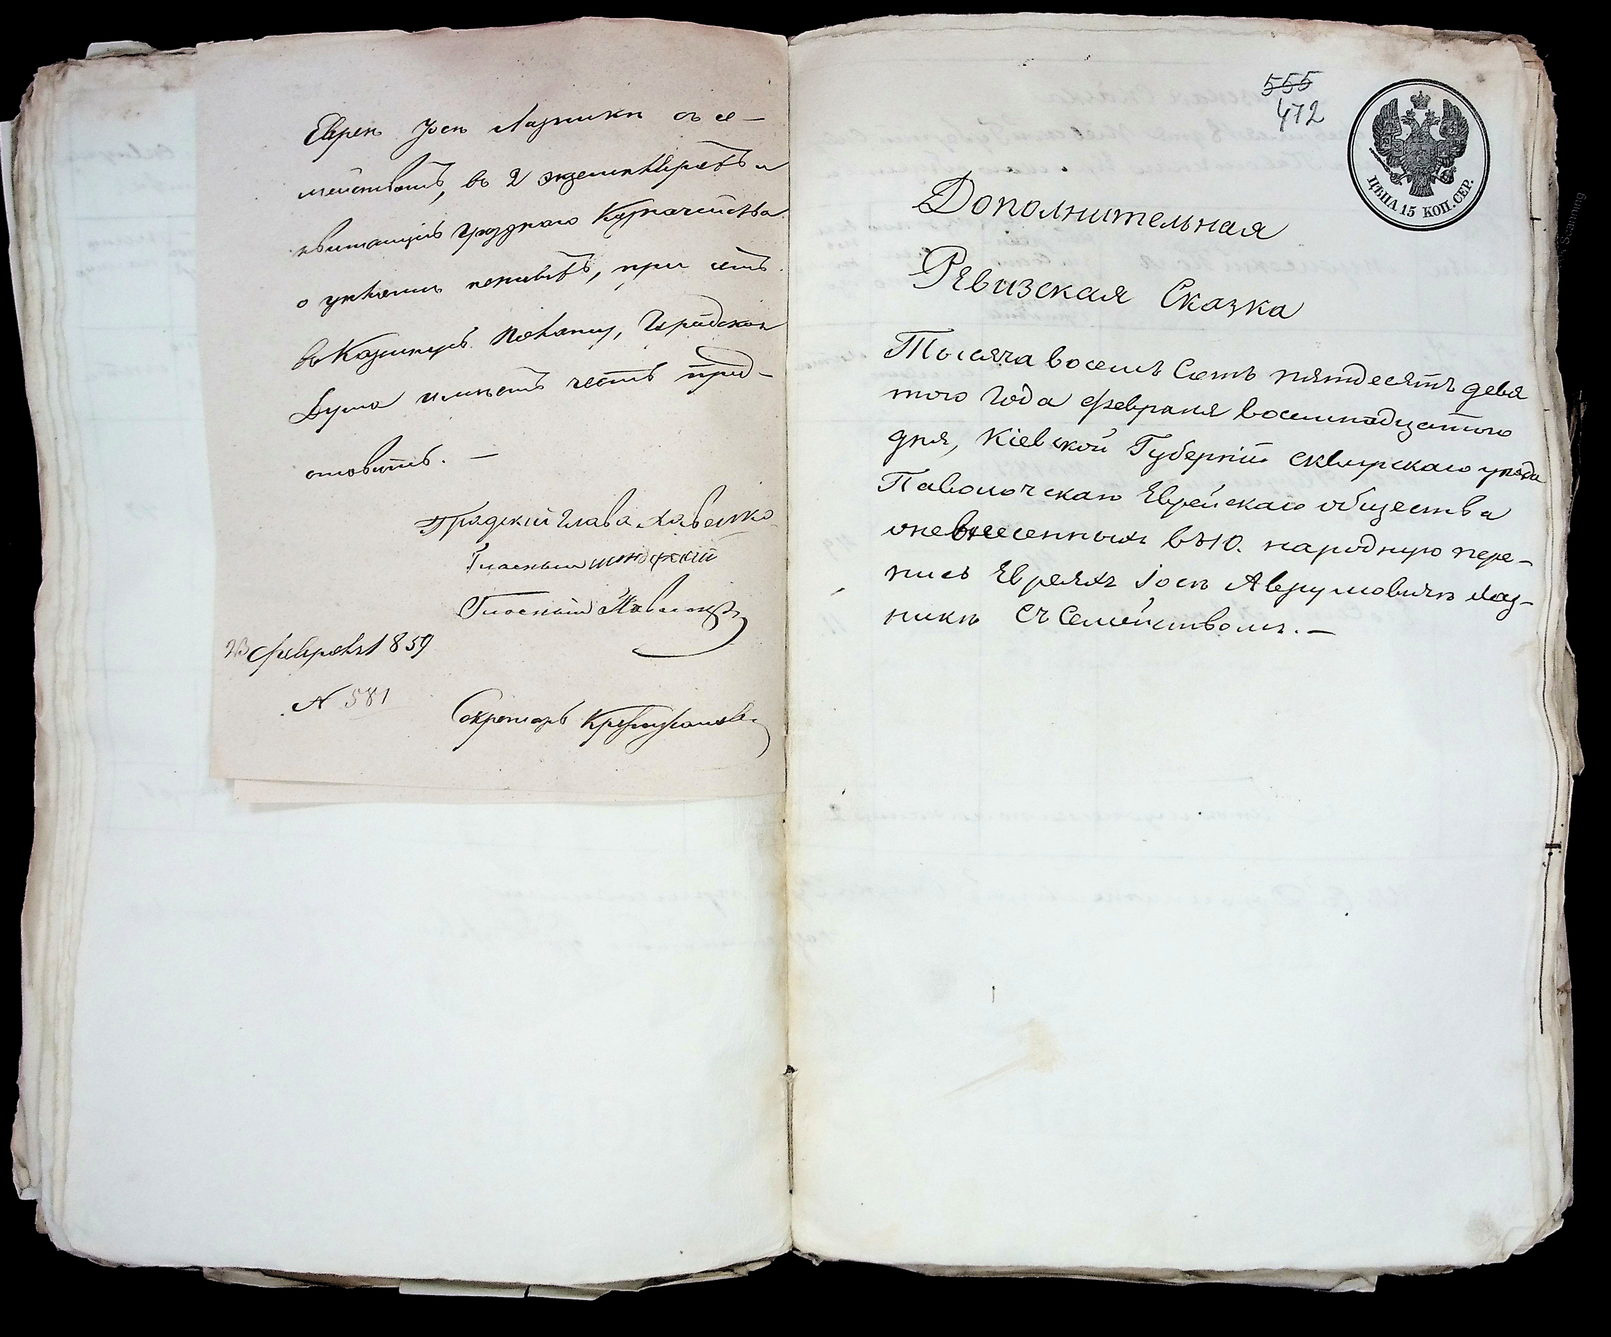 Еврея Іося Лазника съ се-
мействомъ, въ 2 экземплярахъ и
квитанцію Уезднаго Казначейства
о
въ Казенную Палату, Городская
Дума имѣетъ честь пред-
ставить. —
Градскій Глава
Гласный
Гласный
23 февраля 1859
N 581
Секретарь
555
472
ЦѢНА 15 КОП. СЕР.
Дополнительная
Ревизская Сказка
Тысяча восемь Сотъ пятдесятъ девя
того Года февраля восемнадцатого
дня, Кіевской Губерніи Сквирскаго уѣзда
Паволочскаго Еврейскаго общества
оневнесенныхъ въ 10. народную пере-
пись Евреяхъ Іося Аврумовича Лаз-
ника съ Семействомъ. —